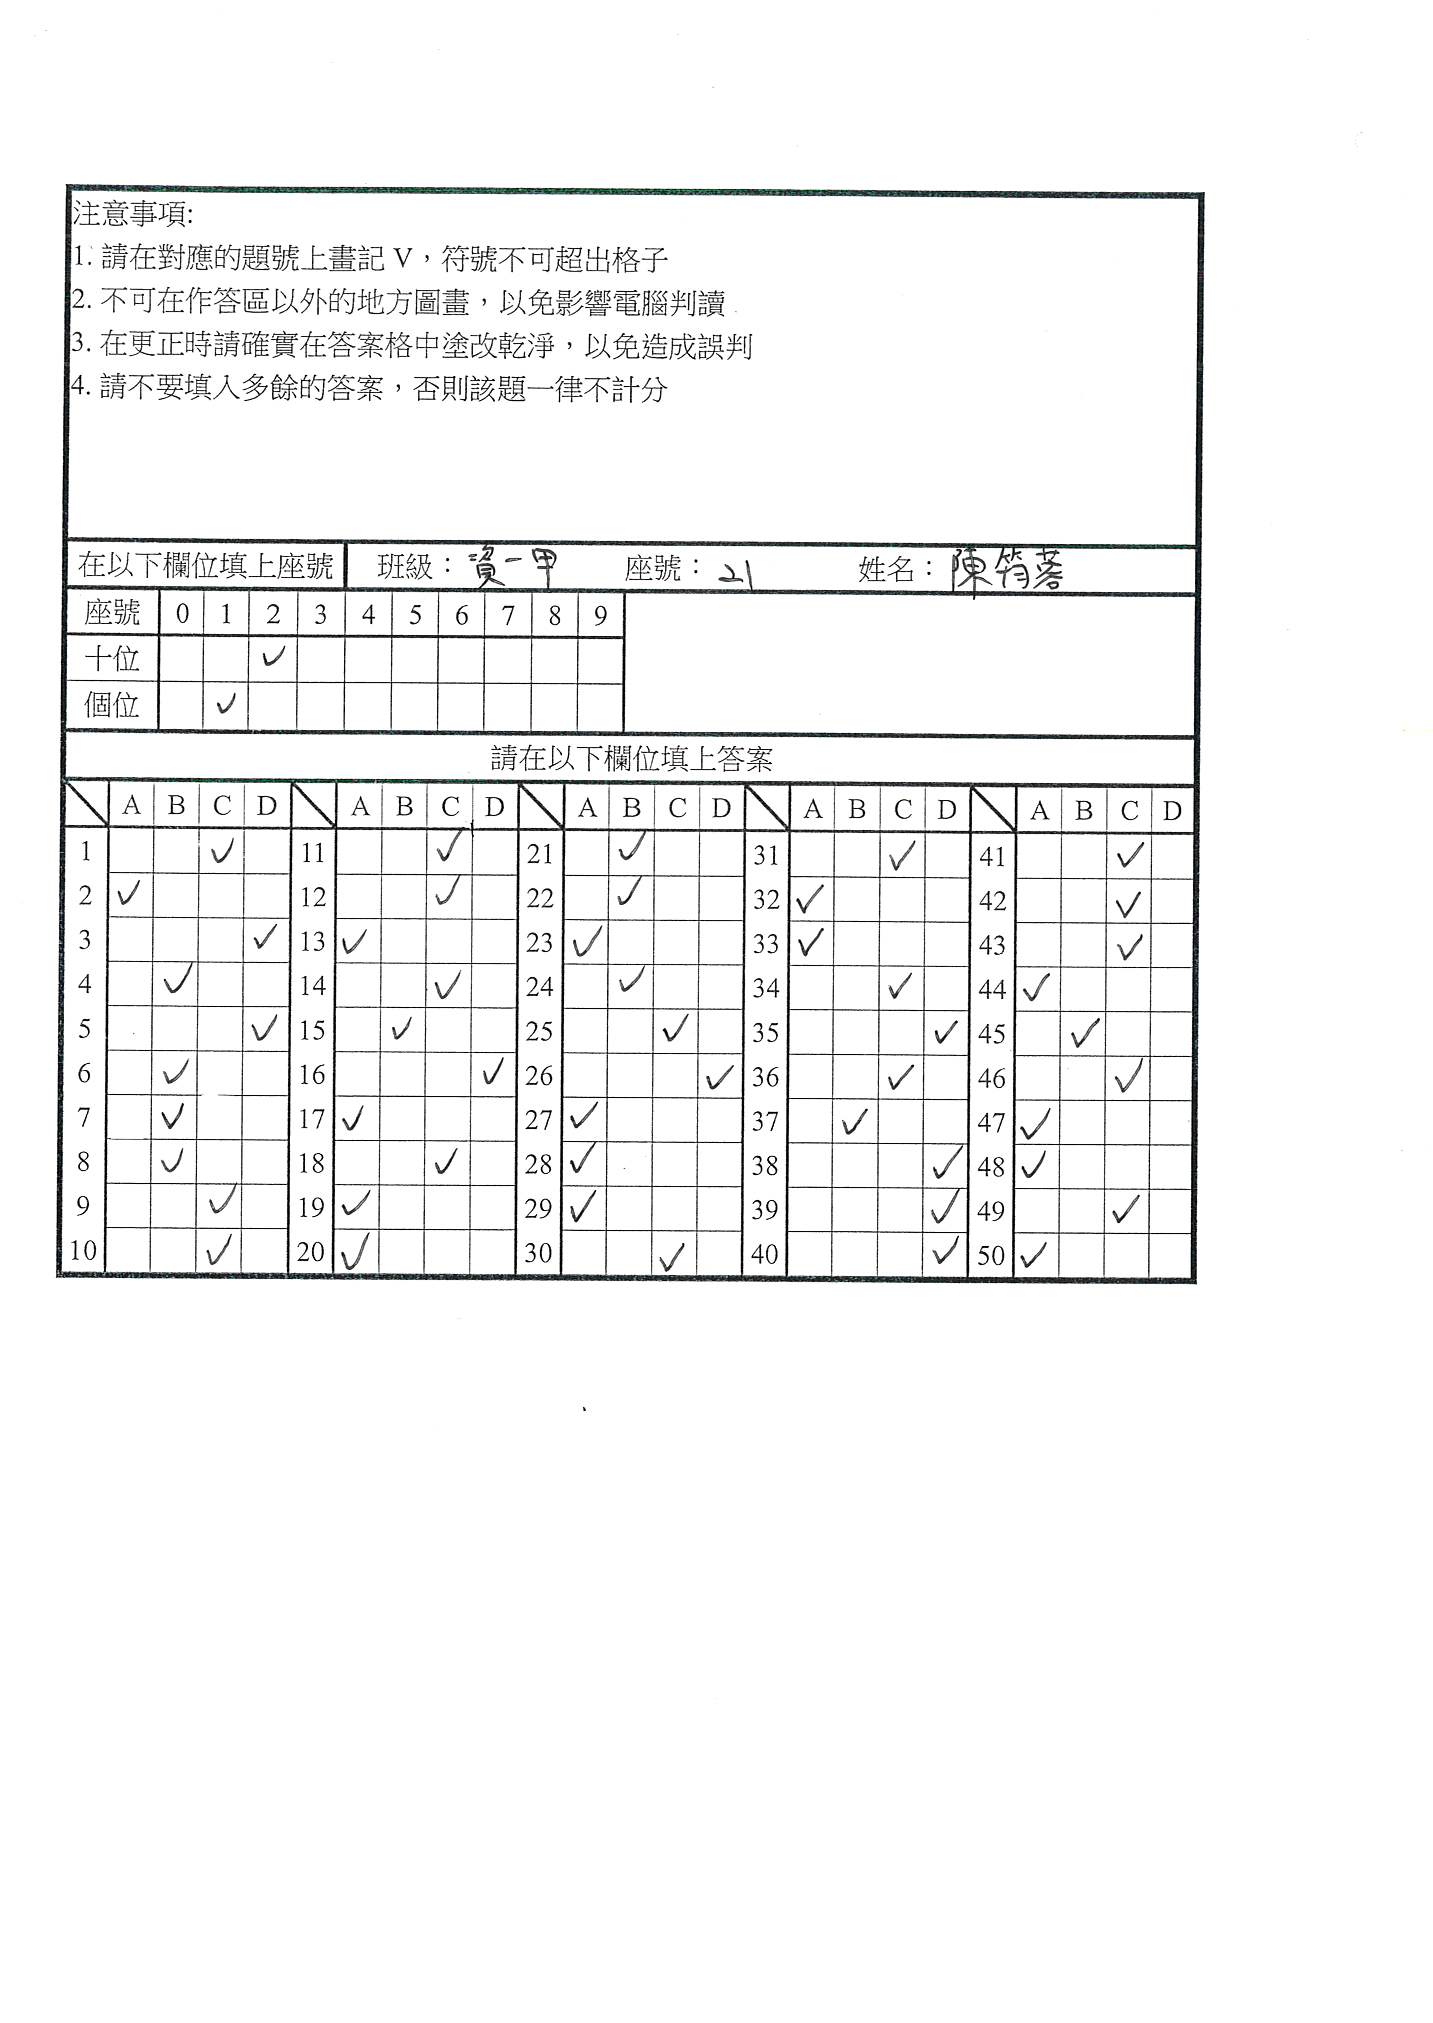 注意事項:
1. 請在對應的題號上畫記 V，符號不可超出格子
2. 不可在作答區以外的地方圖畫，以免影響電腦判讀
3. 在更正時請確實在答案格中塗改乾淨，以免造成誤判
4. 請不要填入多餘的答案，否則該題一律不計分
在以下欄位填上座號 班級：資一甲 座號：21 姓名：陳筠蓉
座號 0 1 2 3 4 5 6 7 8 9
十位 ✓
個位 ✓
請在以下欄位填上答案
A B C D A B C D A B C D A B C D A B C D
1 ✓ 11 ✓ 21 ✓ 31 ✓ 41 ✓
2 ✓ 12 ✓ 22 ✓ 32 ✓ 42 ✓
3 ✓ 13 ✓ 23 ✓ 33 ✓ 43 ✓
4 ✓ 14 ✓ 24 ✓ 34 ✓ 44 ✓
5 ✓ 15 ✓ 25 ✓ 35 ✓ 45 ✓
6 ✓ 16 ✓ 26 ✓ 36 ✓ 46 ✓
7 ✓ 17 ✓ 27 ✓ 37 ✓ 47 ✓
8 ✓ 18 ✓ 28 ✓ 38 ✓ 48 ✓
9 ✓ 19 ✓ 29 ✓ 39 ✓ 49 ✓
10 ✓ 20 ✓ 30 ✓ 40 ✓ 50 ✓